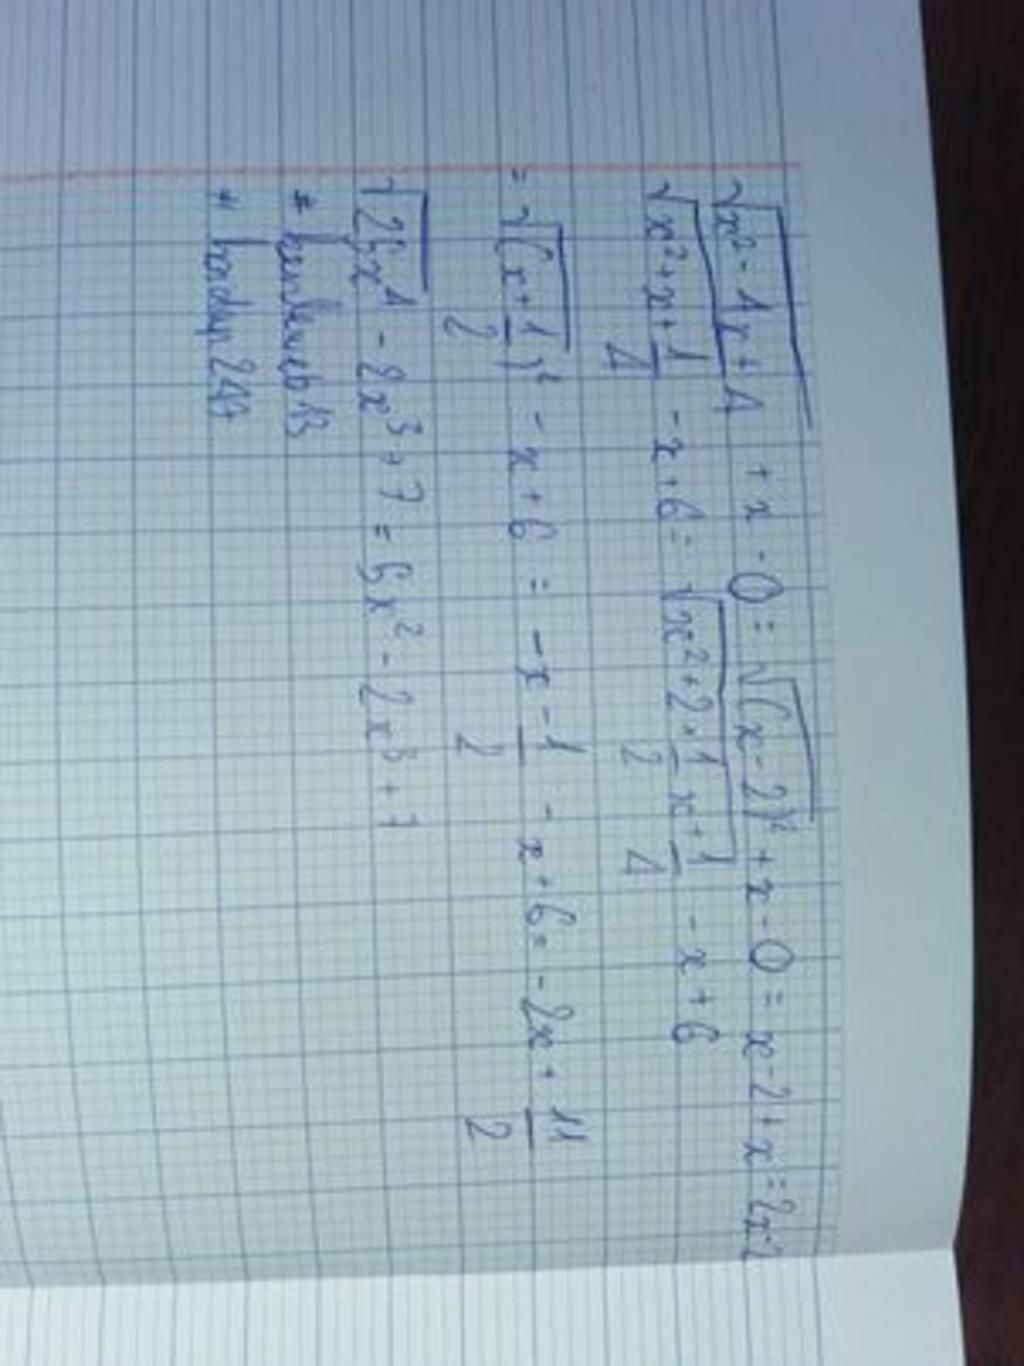 √x² - 4x + 4 + x - 0 = √(x - 2)² + x - 0 = x - 2 + x = 2x-2
√x² + x + 1/4 - x + 6 = √x² + 2 · 1/2 x + 1/4 - x + 6
= √(x + 1/2)² - x + 6 = -x - 1/2 - x + 6 = -2x + 11/2
√25x⁴ - 2x³ + 7 = 5x² - 2x³ + 7
#
#